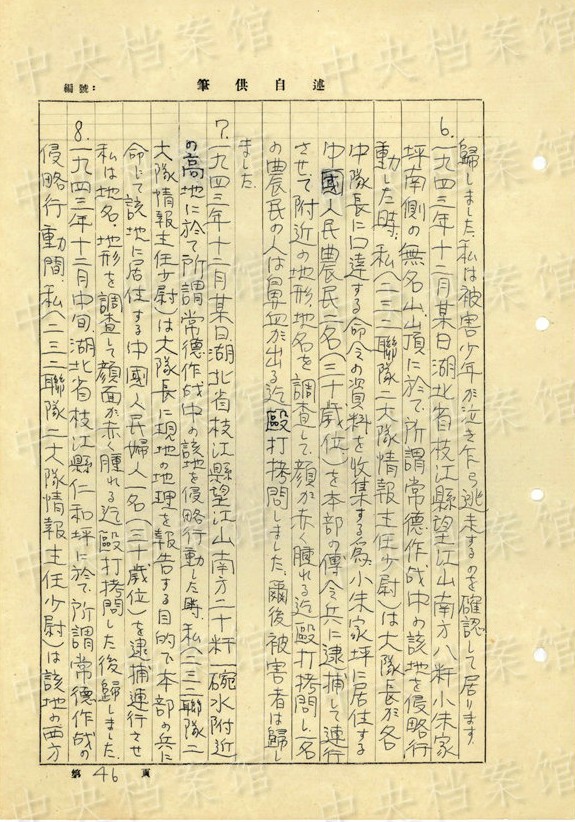 編號：
筆供自述
歸しました、私は被害少年が泣き乍ら逃走するのを確認して居ります
6. 一九四三年十二月某日湖北省枝江縣望江山南方八粁小朱家
坪南側の無名山山頂に於て所謂常德作战中の該地を侵略行
動した時、私（二三二聯隊二大隊情報主任少尉）は大隊長が各
中隊長に口達する命令の資料を収集する為小朱家坪に居住する
中國人民農民二名（三十歲位）を本部の傳令兵に逮捕して連行
させて附近の地形、地名を調査して、顔が赤く腫れる迄毆打拷問し、一名
の農民の人は鼻血が出る迄毆打拷問しました、爾後被害者は歸し
ました
7. 一九四三年十二月某日、湖北省枝江縣望江山南方二十粁一碗水附近
の高地に於て所謂常德作战中の該地を侵略行動した時、私（二三二聯隊二
大隊情報主任少尉）は大隊長に現地の地理を報告する目的で本部の兵に
命じて該地に居住する中國人民婦人一名（三十歲位）を逮捕連行させ
私は地名、地形を調査して顔面が赤く腫れる迄毆打拷問した後歸しました、
8. 一九四三年十二月中旬、湖北省枝江縣仁和坪に於て所謂常德作战の
侵略行動間、私（二三二聯隊二大隊情報主任少尉）は該地の西方
第 46 頁
中央档案馆